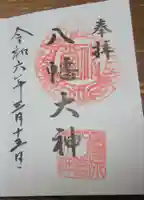 奉拝
八幡大神
令和六年三月十五日